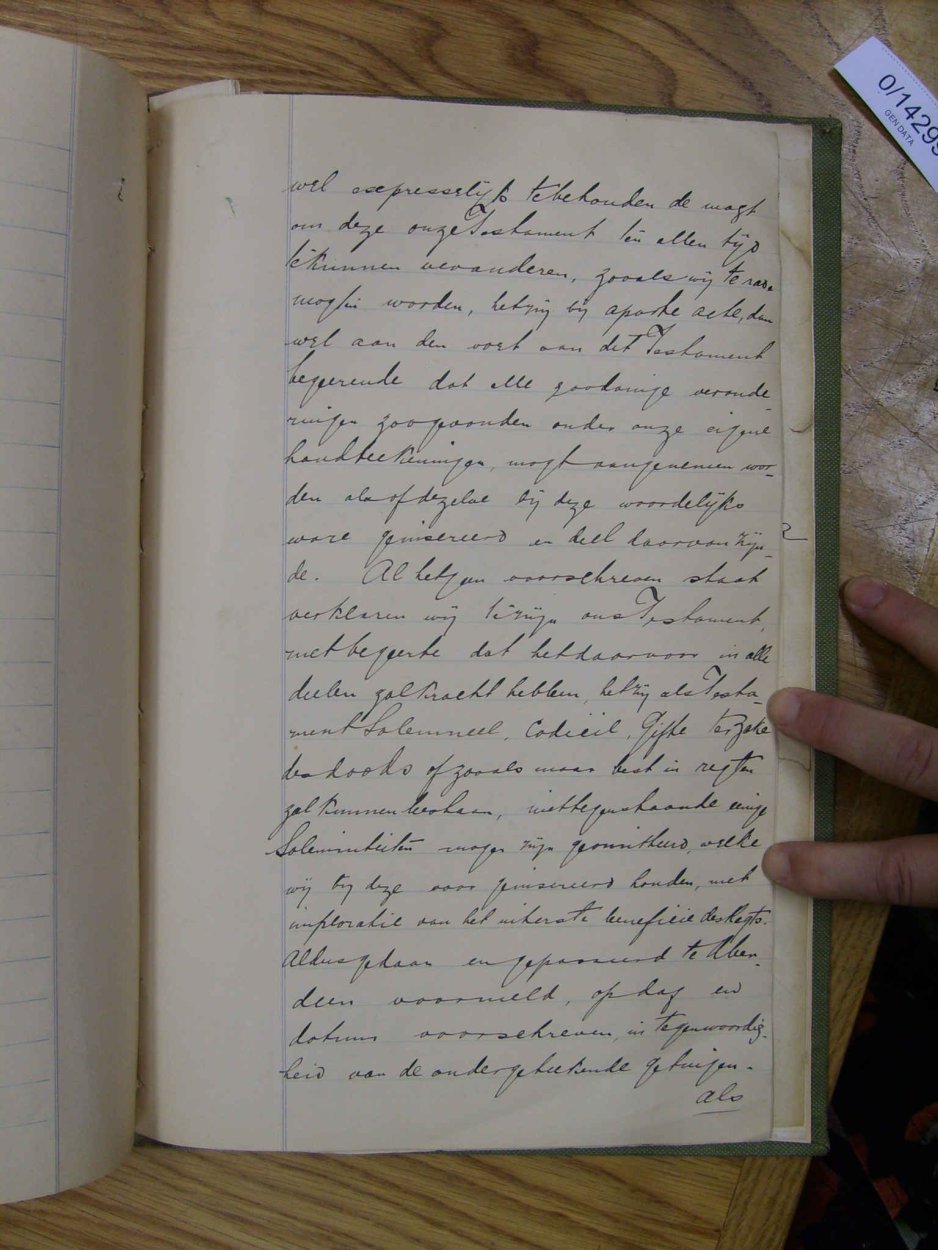 wel expresselijk te behouden de magt
om deze onze Testament ten allen tijd
te kunnen veranderen, zooals wij te rade
mogten worden, hetzij bij aparte acte, dan
wel aan den voet van dit Testament
begeerende dat alle zoodanige verande
ringen zoogevonden onder onze eigene
handteekeningen, mogt aangenomen wor-
den als of dezelve bij deze woordelijks
ware geinsereerd en deel daarvan zijn-
de. Al hetgeen voorschreven staat
verklaren wij te zijn ons Testament,
met begeerte dat het daarvoor in alle
deelen zal kracht hebben, hetzij als Testa-
ment Solemneel, Codicil, Gifte ter zake
des doods of zooals maar best in regten
zal kunnen bestaan, niettegenstaande eenige
Solemniteiten mogen zijn geomitteerd, welke
wij bij deze voor geinsereerd houden, met
imploratie van het uiterste beneficie des Regts.
Aldus gedaan en gepasseerd te Aber-
deen voormeld, op dag en
datum voorschreven, in tegenwoordig-
heid van de ondergeteekende getuigen.
als
2
0/14299
GEN DATA